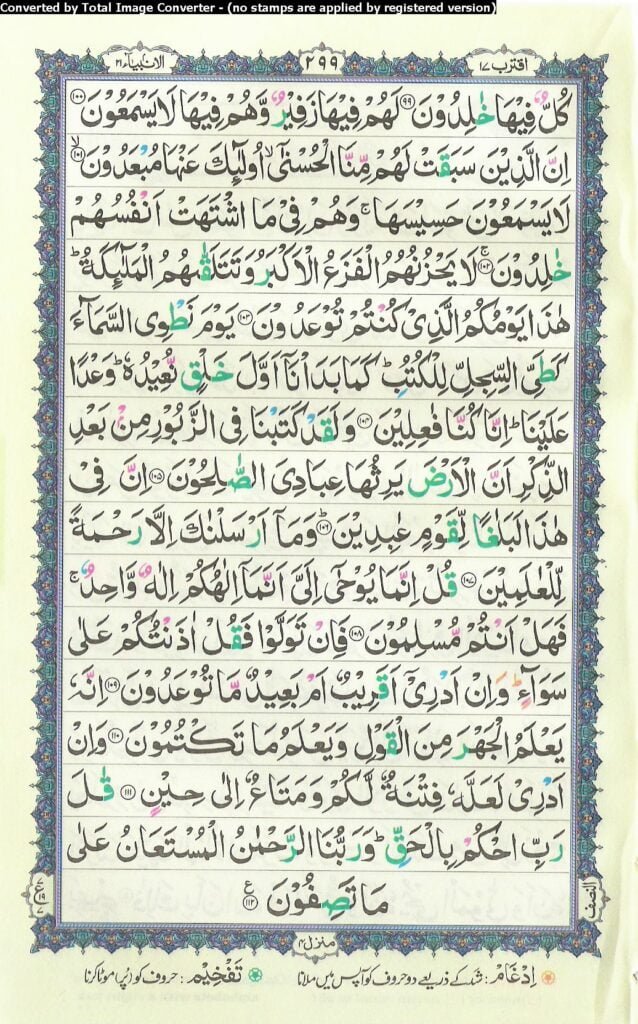 Converted by Total Image Converter - (no stamps are applied by registered version)
اقترب ١٧
٢٩٩
الانبیاء ٢١
كُلٌّ فِیْهَا خٰلِدُوْنَ ﴿٩٩﴾ لَهُمْ فِیْهَا زَفِیْرٌ وَّهُمْ فِیْهَا لَا یَسْمَعُوْنَ ﴿١٠٠﴾
اِنَّ الَّذِیْنَ سَبَقَتْ لَهُمْ مِّنَّا الْحُسْنٰۤى ۙ اُولٰٓىِٕكَ عَنْهَا مُبْعَدُوْنَ ۙ﴿١٠١﴾
لَا یَسْمَعُوْنَ حَسِیْسَهَا ۚ وَهُمْ فِیْ مَا اشْتَهَتْ اَنْفُسُهُمْ
خٰلِدُوْنَ ۚ﴿١٠٢﴾ لَا یَحْزُنُهُمُ الْفَزَعُ الْاَكْبَرُ وَتَتَلَقّٰىهُمُ الْمَلٰٓىِٕكَةُ ؕ
هٰذَا یَوْمُكُمُ الَّذِیْ كُنْتُمْ تُوْعَدُوْنَ ﴿١٠٣﴾ یَوْمَ نَطْوِی السَّمَآءَ
كَطَیِّ السِّجِلِّ لِلْكُتُبِ ؕ كَمَا بَدَاْنَاۤ اَوَّلَ خَلْقٍ نُّعِیْدُهٗ ؕ وَعْدًا
عَلَیْنَا ؕ اِنَّا كُنَّا فٰعِلِیْنَ ﴿١٠٤﴾ وَلَقَدْ كَتَبْنَا فِی الزَّبُوْرِ مِنْۢ بَعْدِ
الذِّكْرِ اَنَّ الْاَرْضَ یَرِثُهَا عِبَادِیَ الصّٰلِحُوْنَ ﴿١٠٥﴾ اِنَّ فِیْ
هٰذَا لَبَلٰغًا لِّقَوْمٍ عٰبِدِیْنَ ؕ﴿١٠٦﴾ وَمَاۤ اَرْسَلْنٰكَ اِلَّا رَحْمَةً
لِّلْعٰلَمِیْنَ ﴿١٠٧﴾ قُلْ اِنَّمَا یُوْحٰۤى اِلَیَّ اَنَّمَاۤ اِلٰهُكُمْ اِلٰهٌ وَّاحِدٌ ۚ
فَهَلْ اَنْتُمْ مُّسْلِمُوْنَ ﴿١٠٨﴾ فَاِنْ تَوَلَّوْا فَقُلْ اٰذَنْتُكُمْ عَلٰى
سَوَآءٍ ؕ وَاِنْ اَدْرِیْۤ اَقَرِیْبٌ اَمْ بَعِیْدٌ مَّا تُوْعَدُوْنَ ﴿١٠٩﴾ اِنَّهٗ
یَعْلَمُ الْجَهْرَ مِنَ الْقَوْلِ وَیَعْلَمُ مَا تَكْتُمُوْنَ ﴿١١٠﴾ وَاِنْ
اَدْرِیْ لَعَلَّهٗ فِتْنَةٌ لَّكُمْ وَمَتَاعٌ اِلٰى حِیْنٍ ﴿١١١﴾ قٰلَ
رَبِّ احْكُمْ بِالْحَقِّ ؕ وَرَبُّنَا الرَّحْمٰنُ الْمُسْتَعَانُ عَلٰى
مَا تَصِفُوْنَ ﴿١١٢﴾ ع
النصف
٧
ع ١٩
٧
منزل ٤
اِدْغَام : شد کے ذریعے دو حروف کو آپس میں ملانا
تَفْخِیْم : حروف کو (پُر) موٹا کرنا